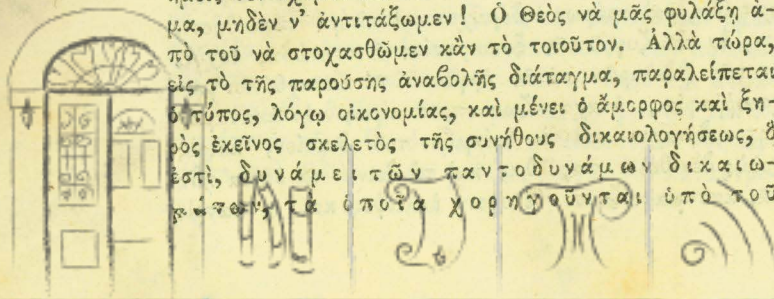 μα, μηδὲν ν’ ἀντιτάξωμεν! Ὁ Θεὸς νὰ μᾶς φυλάξῃ ἀ-
πὸ τοῦ νὰ στοχασθῶμεν κἂν τὸ τοιοῦτον. Ἀλλὰ τώρα,
εἰς τὸ τῆς παρούσης ἀναβολῆς διάταγμα, παραλείπεται
ὁ τύπος, λόγῳ οἰκονομίας, καὶ μένει ὁ ἄμορφος καὶ ξη-
ρὸς ἐκεῖνος σκελετὸς τῆς συνήθους δικαιολογήσεως, ὅ
ἐστὶ, δυνάμει τῶν παντοδυνάμων δικαιω-
μάτων, τὰ ὁποῖα χορηγοῦνται ὑπὸ τοῦ